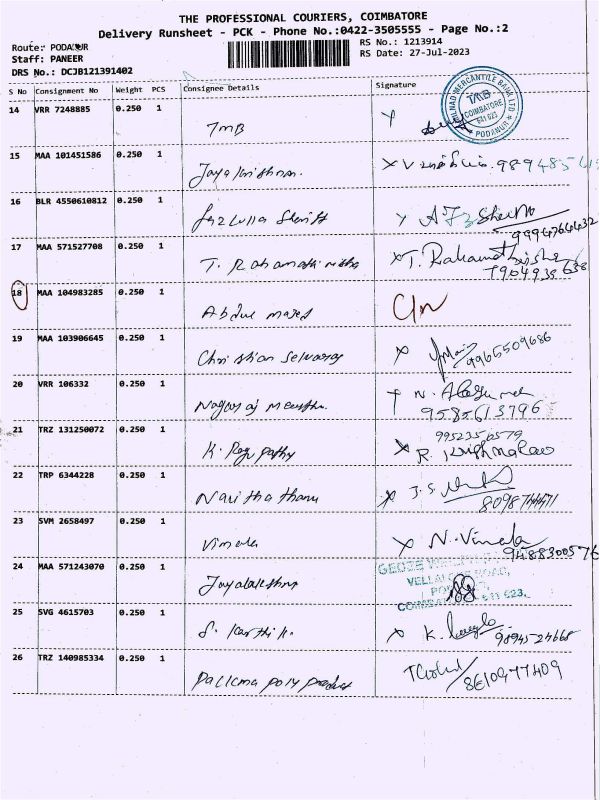 THE PROFESSIONAL COURIERS, COIMBATORE
Delivery Runsheet - PCK - Phone No.:0422-3505555 - Page No.:2
Route: PODANUR
Staff: PANEER
DRS No.: DCJB121391402
RS No.: 1213914
RS Date: 27-Jul-2023
S No Consignment No Weight PCS Consignee Details Signature
14 VRR 7248885 0.250 1 TMB
TAMILNAD MERCANTILE BANK LTD
TMB
COIMBATORE
641 023
PODANUR
15 MAA 101451586 0.250 1 Jayalakshman.
16 BLR 4550610812 0.250 1 Fazlulla Sheriff
9994764432
17 MAA 571527708 0.250 1 T. Rahamathnisha T. Rahamathnisha
7904939638
18 MAA 104983285 0.250 1 Abdul majed
19 MAA 103906645 0.250 1 Christian Selvaraj 9965509686
20 VRR 106332 0.250 1 Nagaraj N.
9585613796
21 TRZ 131250072 0.250 1 K. Regupathy 9952356579
R. Krishna Rao
22 TRP 6344228 0.250 1 J.S.
23 SVM 2658497 0.250 1 Vimala N. Vimala
9488300576
24 MAA 571243070 0.250 1 Jayalakshmi
ROAD,
COIMBATORE 641 023.
25 SVG 4615703 0.250 1 S. Karthik. K.
9894524668
26 TRZ 140985334 0.250 1 poly product
8610977409